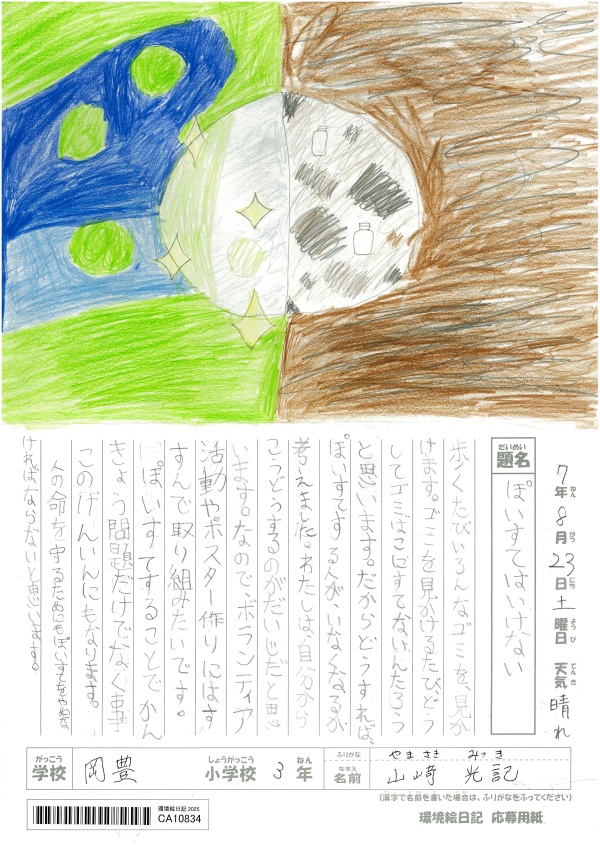 7年8月23日土曜日 天気 晴れ
ねん がつ にち ようび てんき
だいめい
題名
ぽいすてはいけない
歩くたびいろんなゴミを、見か
けます。ゴミを見かけるたび、どう
してゴミはここにすてないんだろう
と思います。だからどうすれば、
ぽいすてする人が、いなくなるか
考えました。わたしは、自分から
こうどうするのがだいじだと思
います。なので、ボランティア
活動やポスター作りにはす
すんで取り組みたいです。
ぽいすてすることでかん
きょう問題だけでなく事
このげんいんにもなります。
人の命を守るためにもぽいすてをやめな
ければならないと思います。
がっこう しょうがっこう ねん ふりがな やまさき みつき
学校 岡豊 小学校 3年 なまえ 名前 山﨑 光記
(漢字で名前を書いた場合は、ふりがなをふってください)
環境絵日記 2025
CA10834
環境絵日記 応募用紙